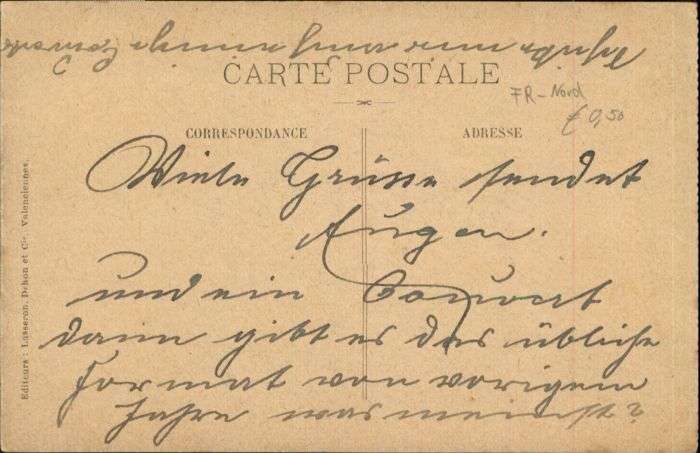 CARTE POSTALE
FR-Nord
€ 0,50
CORRESPONDANCE ADRESSE
Viele Grüsse sendet
Eugen.
und ein Couvert
dann gibt es das übliche
Format von vorigem
Jahre was meinst?
Editeurs : Lasseron, Dehon et Cie. Valenciennes.